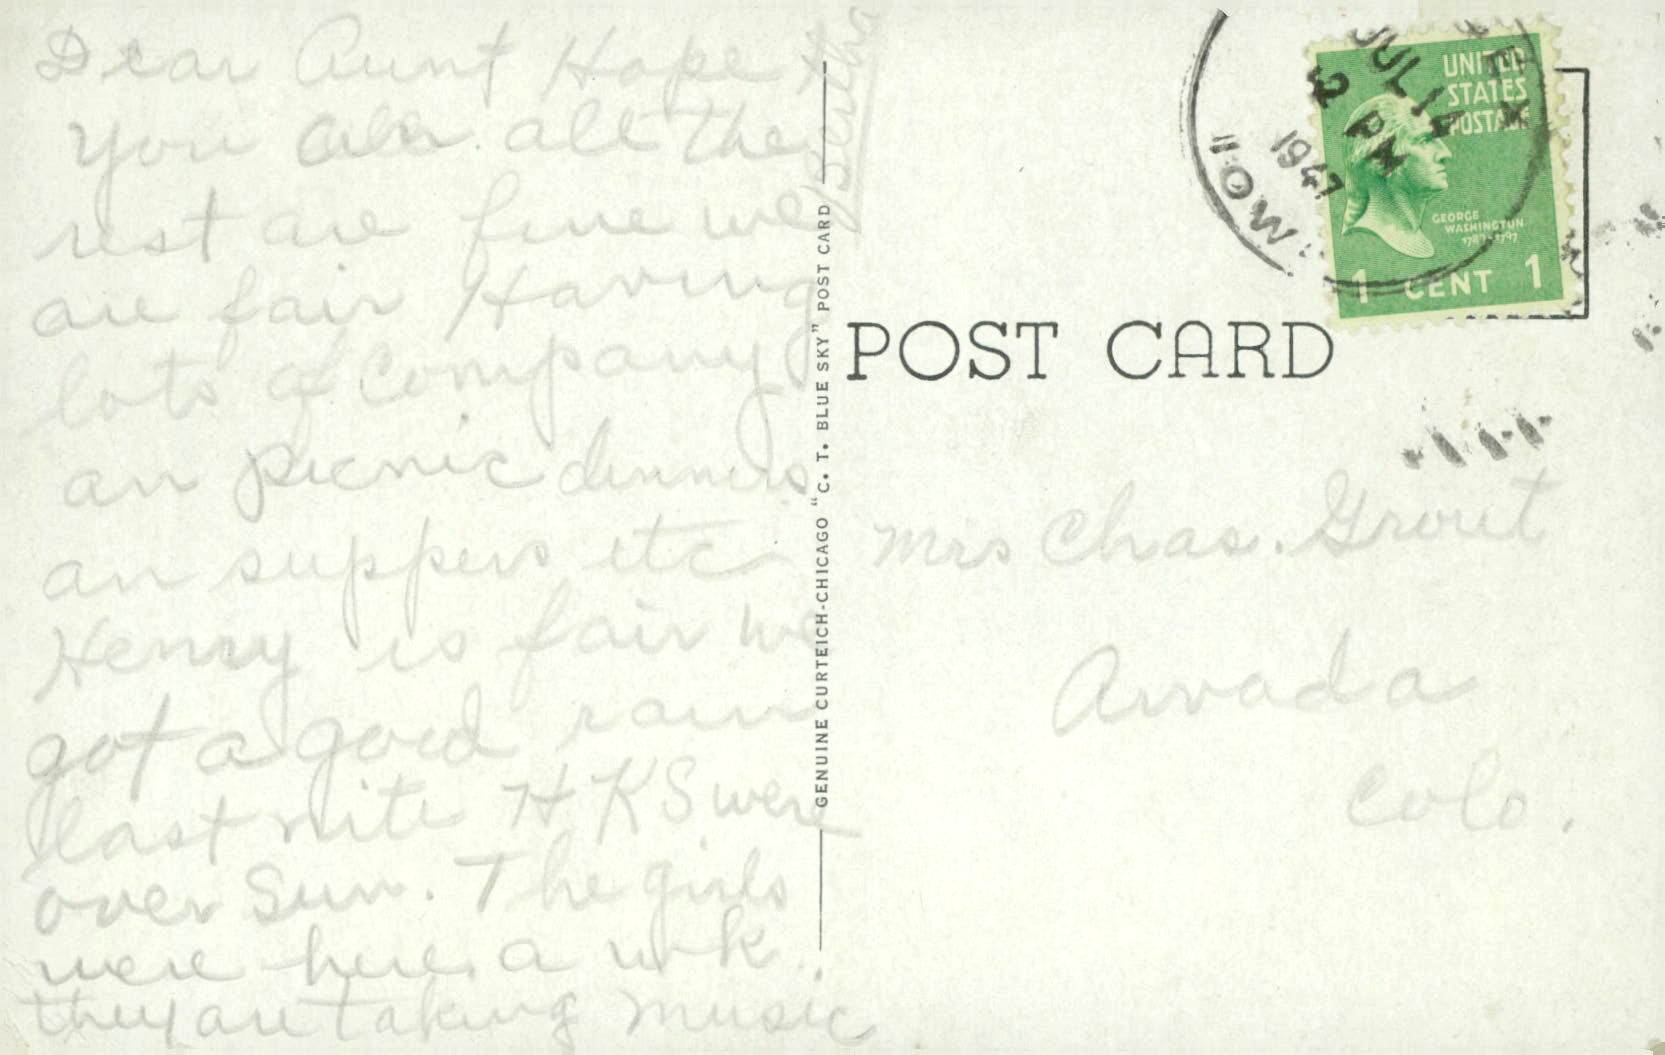 Dear Aunt Hope
you all the
rest are fine we
are fair Having
lots of Company
an picnic dinners
an suppers etc
Henry is fair we
got a good rain
last nite H K S were
over Sun. The girls
were here a wk.
they are taking music
Bertha
GENUINE CURTEICH-CHICAGO "C. T. BLUE SKY" POST CARD
POST CARD
JUL
2 PM
1947
IOWA
UNITED
STATES
POSTAGE
GEORGE
WASHINGTON
1789-1797
1 CENT 1
Mrs Chas. Grout
Arvada
Colo.